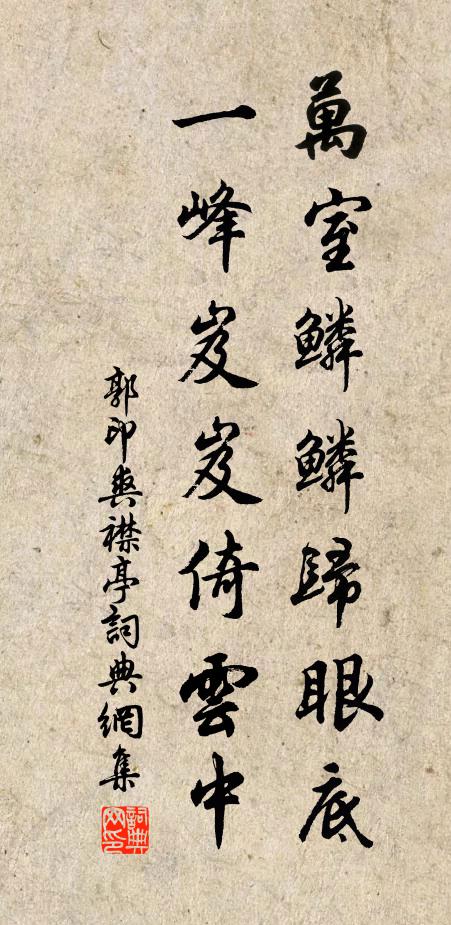 萬室鱗鱗歸眼底
一峰岌岌倚雲中
郭印爽襟亭詞典網集
詞典网印